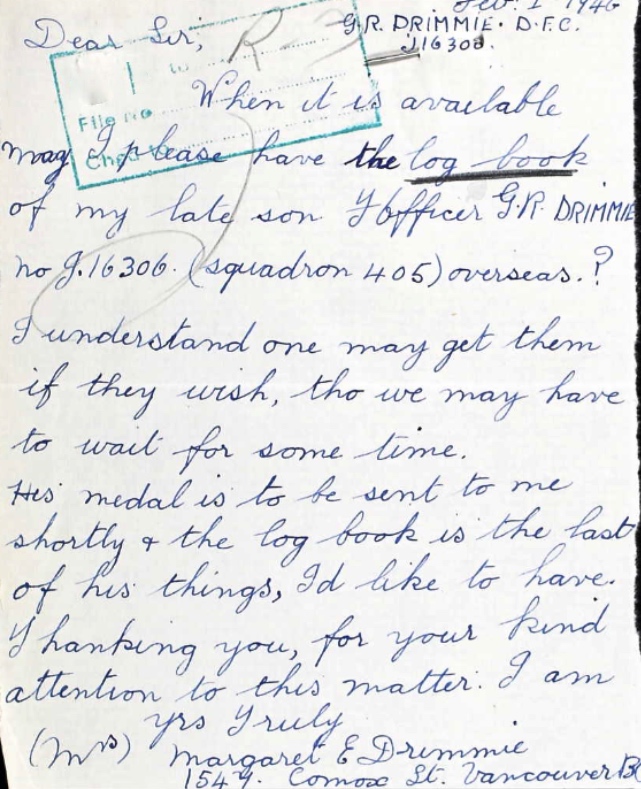 Feb. 1 1946
G.R. DRIMMIE. D.F.C.
J16306.
Dear Sir,
to R-3
File No
When it is available
may I please have the log book
of my late son F/Officer G.R. DRIMMIE
no J.16306. (squadron 405) overseas.?
I understand one may get them
if they wish, tho we may have
to wait for some time.
His medal is to be sent to me
shortly & the log book is the last
of his things, I'd like to have.
Thanking you, for your kind
attention to this matter. I am
yrs Truly
(Mrs) Margaret E Drimmie
Comox St. Vancouver BC